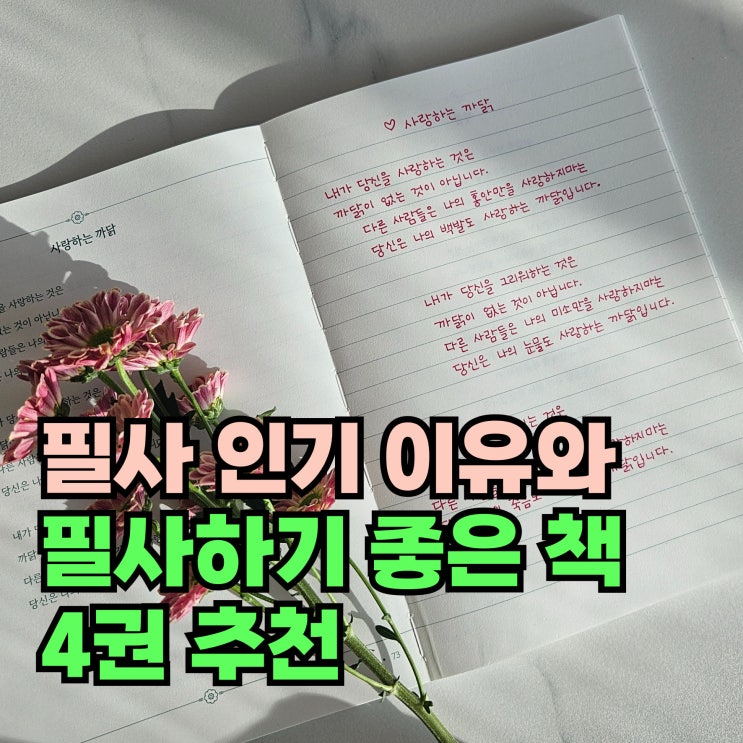 사랑하는 까닭
사랑하는 것은
없는 것이
♡ 사랑하는 까닭
내가 당신을 사랑하는 것은
까닭이 없는 것이 아닙니다.
다른 사람들은 나의 홍안만을 사랑하지마는
당신은 나의 백발도 사랑하는 까닭입니다.
내가 당신을 그리워하는 것은
까닭이 없는 것이 아닙니다.
다른 사람들은 나의 미소만을 사랑하지마는
당신은 나의 눈물도 사랑하는 까닭입니다.
것은
73
필사 인기 이유와
필사하기 좋은 책
4권 추천